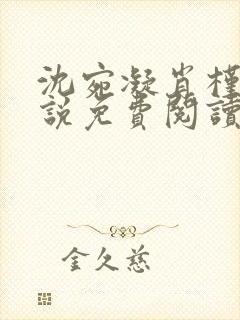 沈宛凝肖槿
說免費閱讀
金久慈